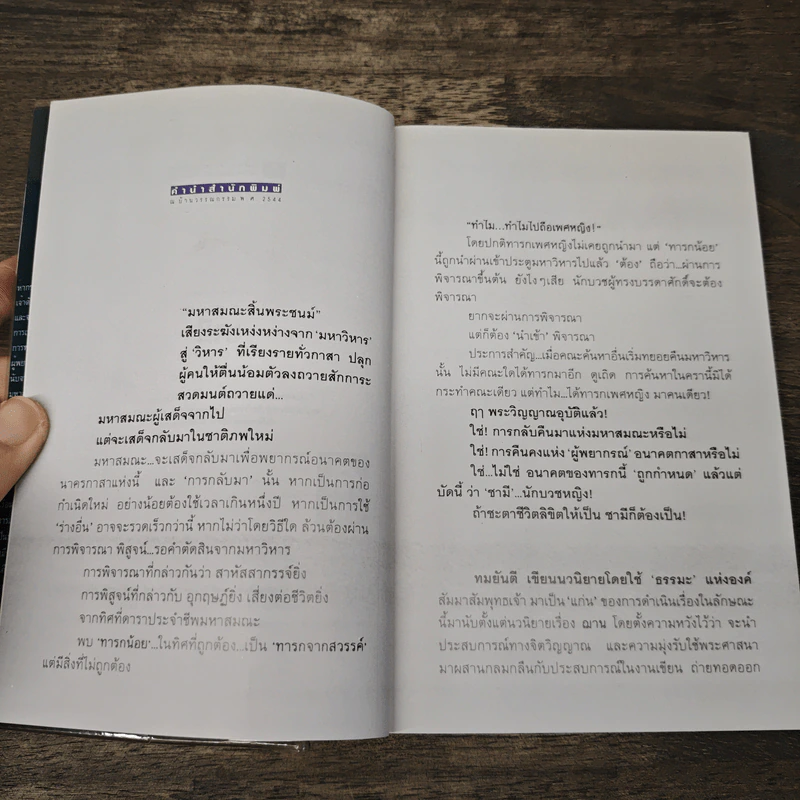 คำนำสำนักพิมพ์
ณ บ้านวรรณกรรม พ.ศ. 2544
"มหาสมณะสิ้นพระชนม์"
เสียงระฆังเหง่งหง่างจาก 'มหาวิหาร'
สู่ 'วิหาร' ที่เรียงรายทั่วกาสา ปลุก
ผู้คนให้ตื่นน้อมตัวลงถวายสักการะ
สวดมนต์ถวายแด่...
มหาสมณะผู้เสด็จจากไป
แต่จะเสด็จกลับมาในชาติภพใหม่
มหาสมณะ...จะเสด็จกลับมาเพื่อพยากรณ์อนาคตของ
นาครกาสาแห่งนี้ และ 'การกลับมา' นั้น หากเป็นการก่อ
กำเนิดใหม่ อย่างน้อยต้องใช้เวลาเกินหนึ่งปี หากเป็นการใช้
'ร่างอื่น' อาจจะรวดเร็วกว่านี้ หากไม่ว่าโดยวิธีใด ล้วนต้องผ่าน
การพิจารณา พิสูจน์...รอคำตัดสินจากมหาวิหาร
การพิจารณาที่กล่าวกันว่า สาหัสสากรรจ์ยิ่ง
การพิสูจน์ที่กล่าวกับ อุกฤษฏ์ยิ่ง เสี่ยงต่อชีวิตยิ่ง
จากทิศที่ดาราประจำชีพมหาสมณะ
พบ 'ทารกน้อย'...ในทิศที่ถูกต้อง...เป็น 'ทารกจากสวรรค์'
แต่มีสิ่งที่ไม่ถูกต้อง
"ทำไม...ทำไมไปถือเพศหญิง!"
โดยปกติทารกเพศหญิงไม่เคยถูกนำมา แต่ 'ทารกน้อย'
นี้ถูกนำผ่านเข้าประตูมหาวิหารไปแล้ว 'ต้อง' ถือว่า...ผ่านการ
พิจารณาขึ้นต้น ยังไงๆเสีย นักบวชผู้ทรงบรรดาศักดิ์จะต้อง
พิจารณา
ยากจะผ่านการพิจารณา
แต่ก็ต้อง 'นำเข้า' พิจารณา
ประการสำคัญ...เมื่อคณะค้นหาอื่นเริ่มทยอยคืนมหาวิหาร
นั้น ไม่มีคณะใดได้ทารกมาอีก ดูเถิด การค้นหาในครานี้มิได้
กระทำคณะเดียว แต่ทำไม...ได้ทารกเพศหญิง มาคนเดียว!
ฤๅ พระวิญญาณอุบัติแล้ว!
ใช่! การกลับคืนมาแห่งมหาสมณะหรือไม่
ใช่! การคืนคงแห่ง 'ผู้พยากรณ์' อนาคตกาสาหรือไม่
ใช่...ไม่ใช่ อนาคตของทารกนี้ 'ถูกกำหนด' แล้วแต่
บัดนี้ ว่า 'ชามี'...นักบวชหญิง!
ถ้าชะตาชีวิตลิขิตให้เป็น ชามีก็ต้องเป็น!
ทมยันตี เขียนนวนิยายโดยใช้ 'ธรรมะ' แห่งองค์
สัมมาสัมพุทธเจ้า มาเป็น 'แก่น' ของการดำเนินเรื่องในลักษณะ
นี้มานับตั้งแต่นวนิยายเรื่อง ฌาน โดยตั้งความหวังไว้ว่า จะนำ
ประสบการณ์ทางจิตวิญญาณ และความมุ่งรับใช้พระศาสนา
มาผสานกลมกลืนกับประสบการณ์ในงานเขียน ถ่ายทอดออก